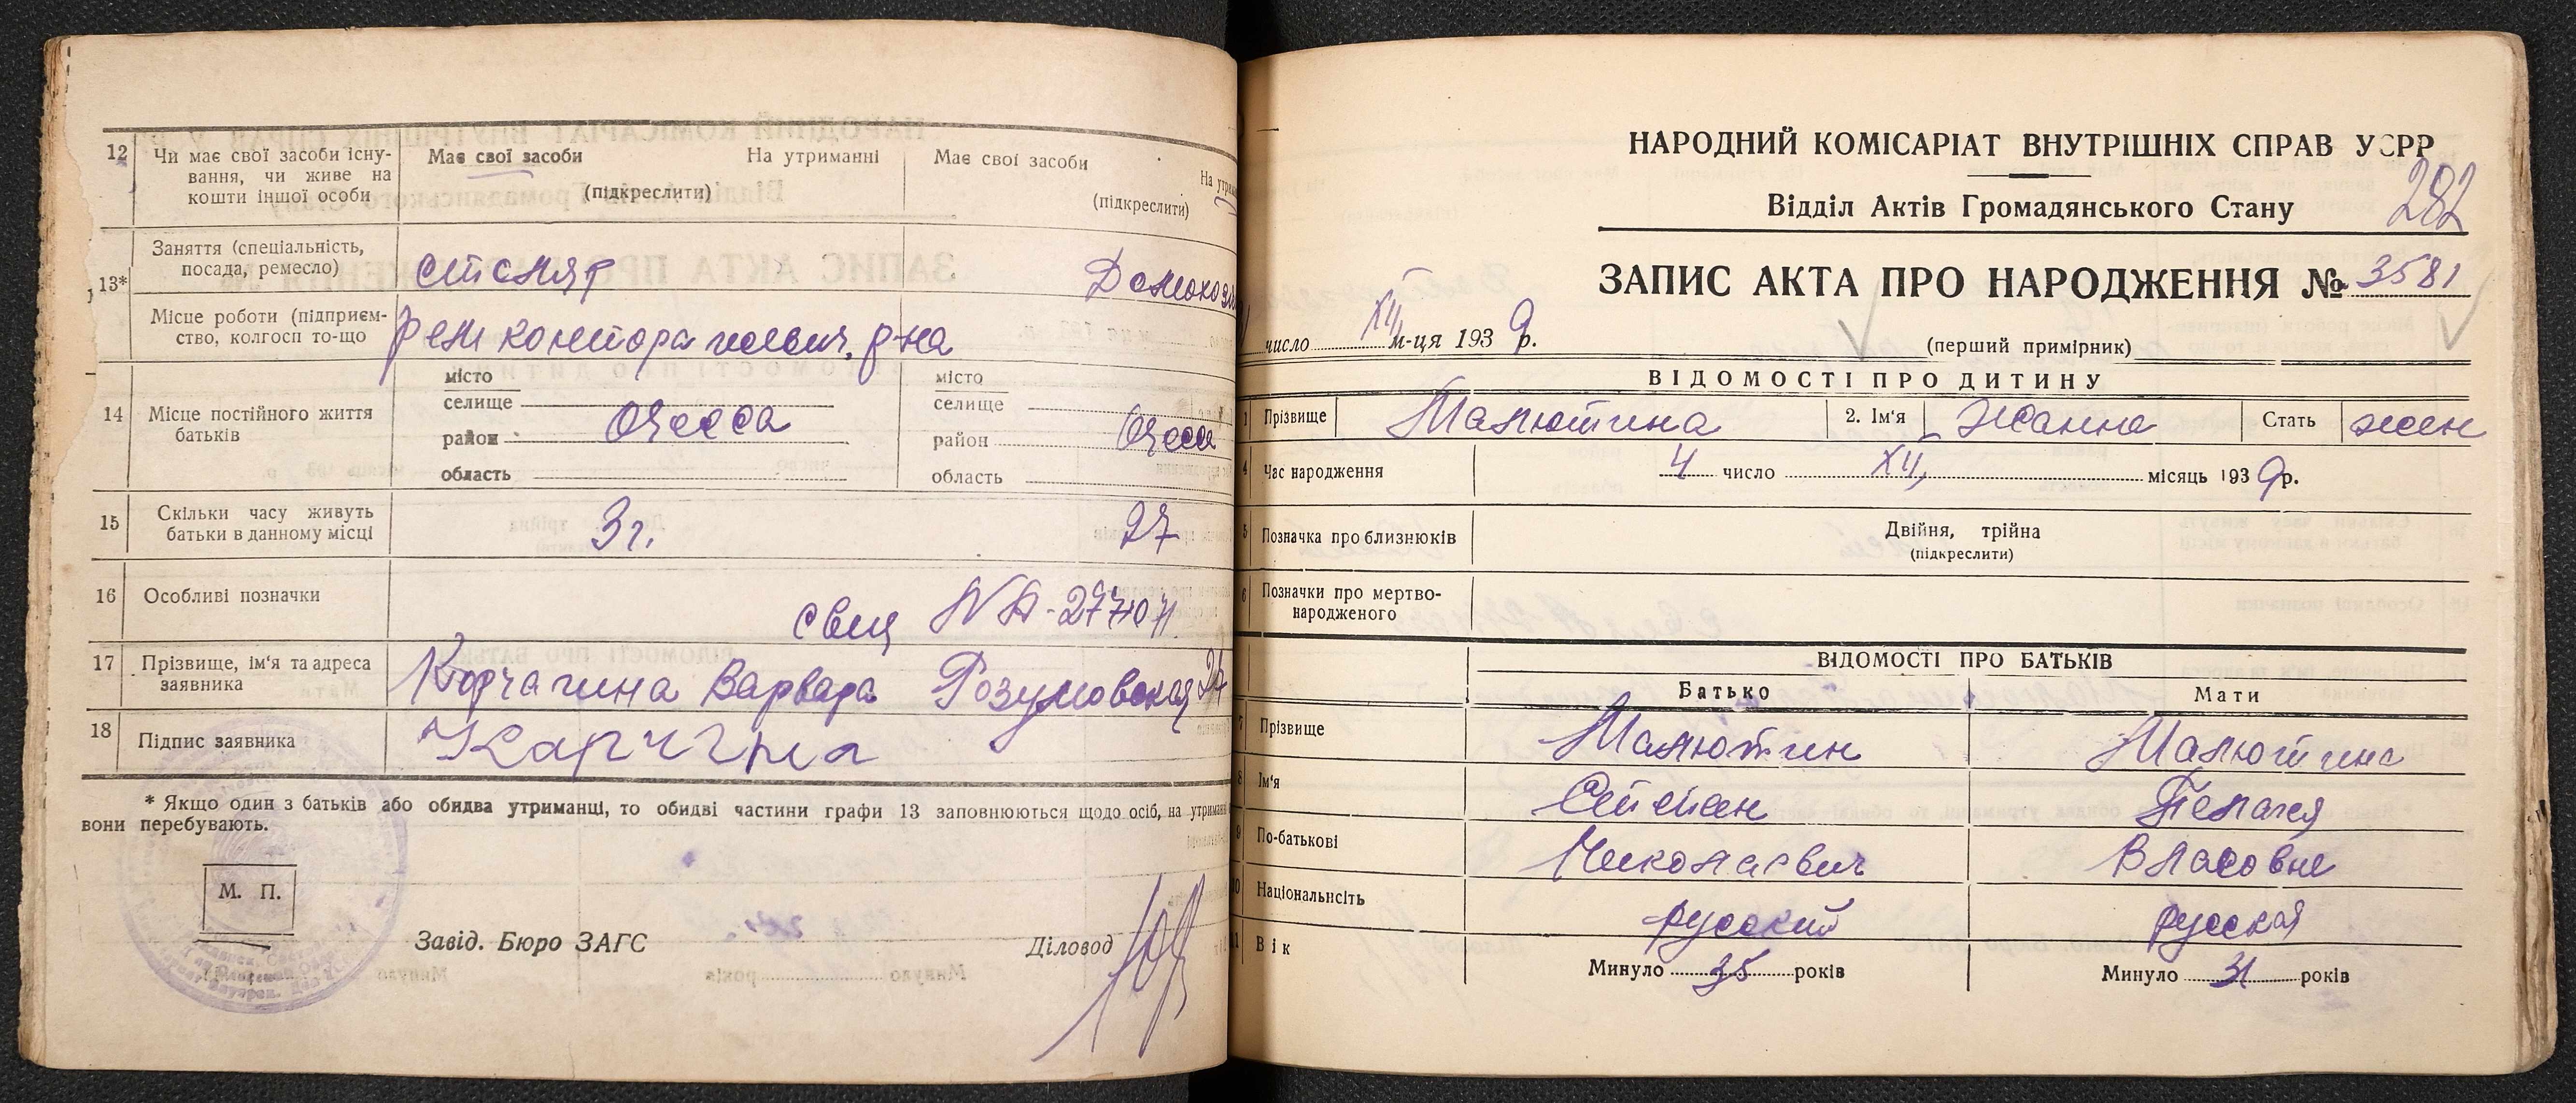 12 Чи має свої засоби існу-
вання, чи живе на
кошти іншої особи
Має свої засоби На утриманні
(підкреслити)
Має свої засоби На утрим
(підкреслити)
13*
Заняття (спеціальність,
посада, ремесло)
столяр
Домохоз
Місце роботи (підприєм-
ство, колгосп то-що
Рем контора р-на
14 Місце постійного життя
батьків
місто
селище
район
область
Одесса
місто
селище
район
область
Одесса
15 Скільки часу живуть
батьки в данному місці
3 г.
27
16 Особливі позначки
17 Прізвище, ім'я та адреса
заявника
Корчагина Варвара Розумовская 24
18 Підпис заявника
* Якщо один з батьків або обидва утриманці, то обидві частини графи 13 заповнюються щодо осіб, на утриман
вони перебувають.
М. П.
Завід. Бюро ЗАГС
Діловод
НАРОДНИЙ КОМІСАРІАТ ВНУТРІШНІХ СПРАВ УСРР
Відділ Актів Громадянського Стану
282
ЗАПИС АКТА ПРО НАРОДЖЕННЯ № 3581
число XII м-ця 1939 р.
(перший примірник)
ВІДОМОСТІ ПРО ДИТИНУ
1 Прізвище Малютина 2. Ім'я Жанна Стать жен
4 Час народження 4 число XII місяць 1939 р.
5 Позначка про близнюків
Двійня, трійна
(підкреслити)
6 Позначки про мертво-
народженого
ВІДОМОСТІ ПРО БАТЬКІВ
Батько Мати
7 Прізвище Малютин Малютина
8 Ім'я Степан Пелагея
9 По-батькові Николаевич Власовна
10 Національність русский русская
11 Вік
Минуло 35 років
Минуло 31 років